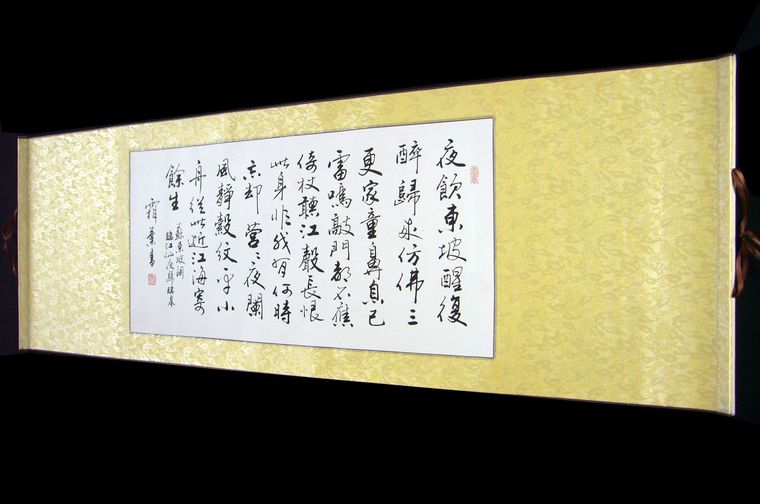 夜飲東坡醒復
醉歸來仿佛三
更家童鼻息已
雷鳴敲門都不應
倚杖聽江聲長恨
此身非我有何時
忘却營々夜闌
風靜縠紋平小
舟從此逝江海寄
餘生
蘇東坡詞
臨江仙夜歸臨皋
霜葉書